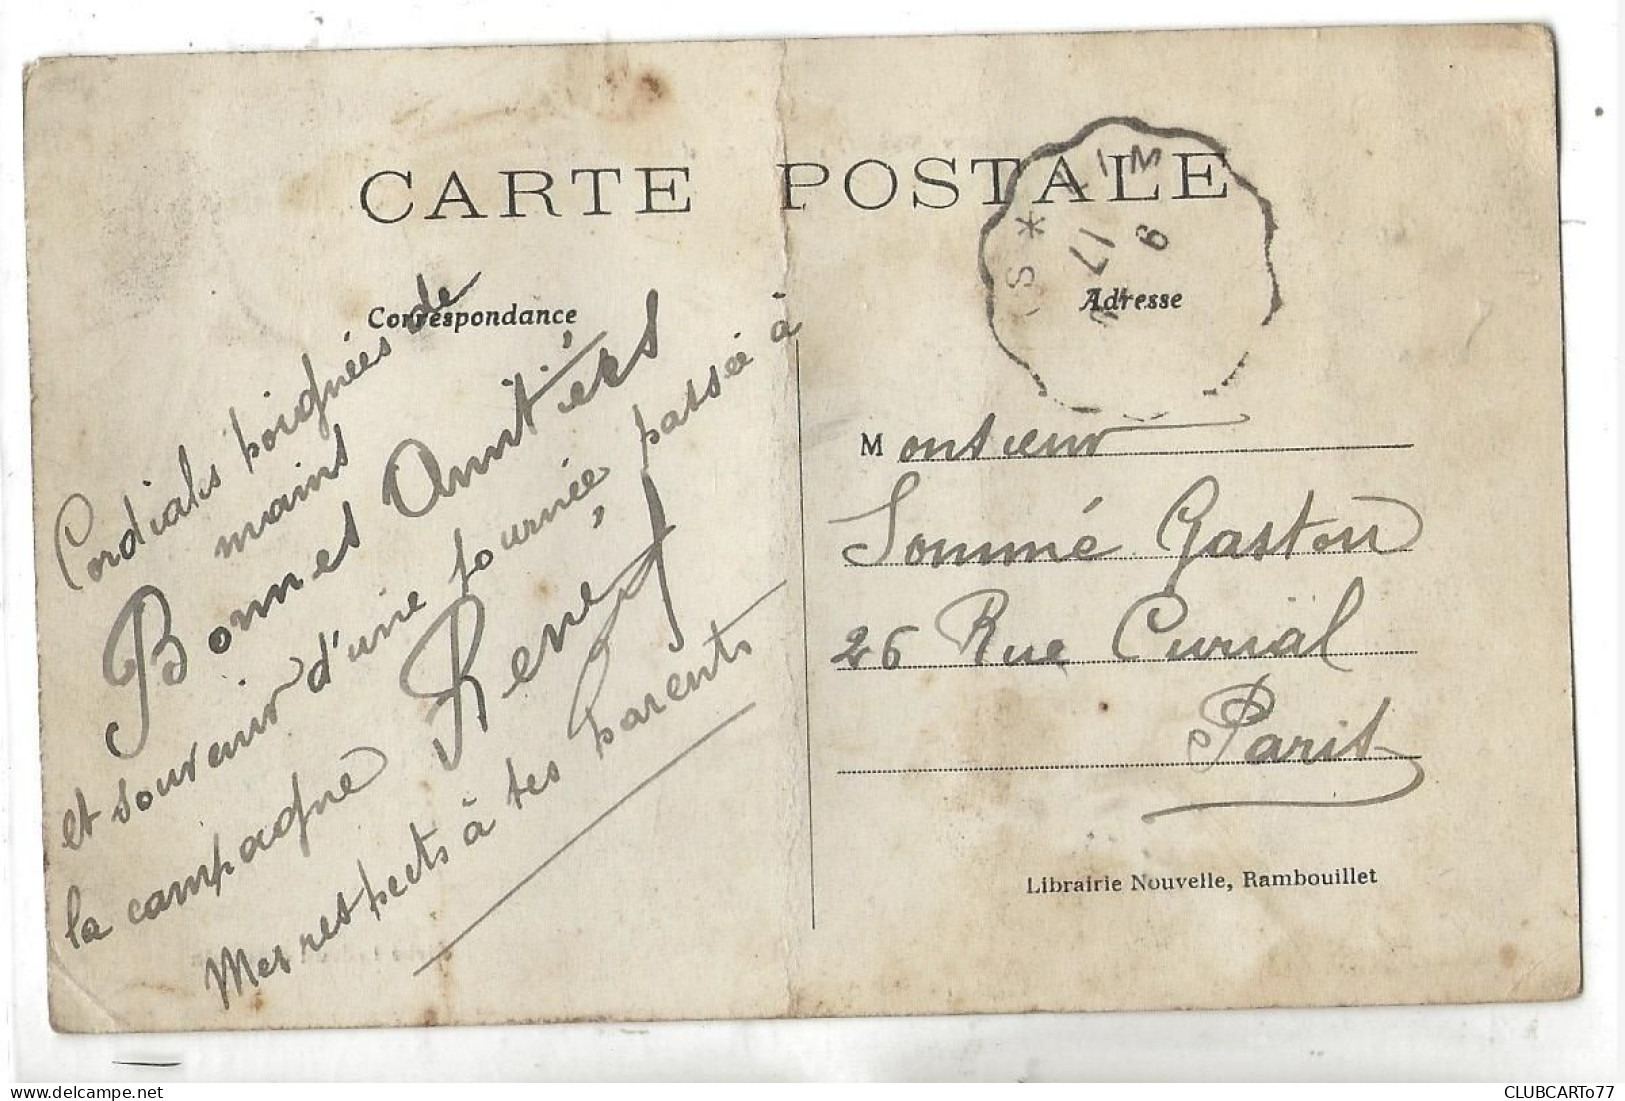 CARTE POSTALE
Correspondance
Adresse
Cordiales poignées de
mains
Bonnes Amitiés
et souvenir d'une tournée passée à
la campagne René
Mes respects à tes parents
Monsieur
Sommé Gaston
26 Rue Curial
Paris
Librairie Nouvelle, Rambouillet
CLUBCARTo77